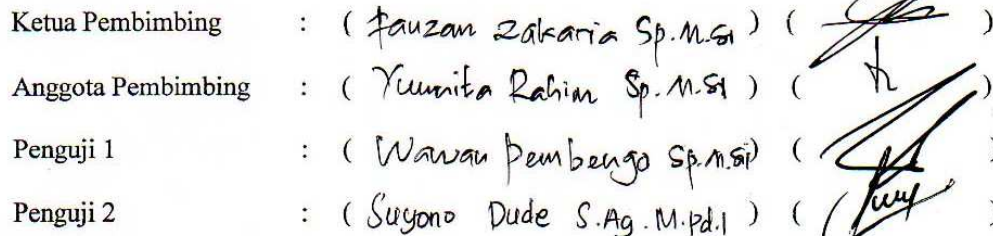 Ketua Pembimbing : ( Fauzan Zakaria Sp.M.Si ) ( )
Anggota Pembimbing : ( Yunnita Rahim Sp.M.Si ) ( )
Penguji 1 : ( Wawan Pembengo Sp.M.Si ) (
Penguji 2 : ( Suyono Dude S.Ag.M.Pd.I ) ( )